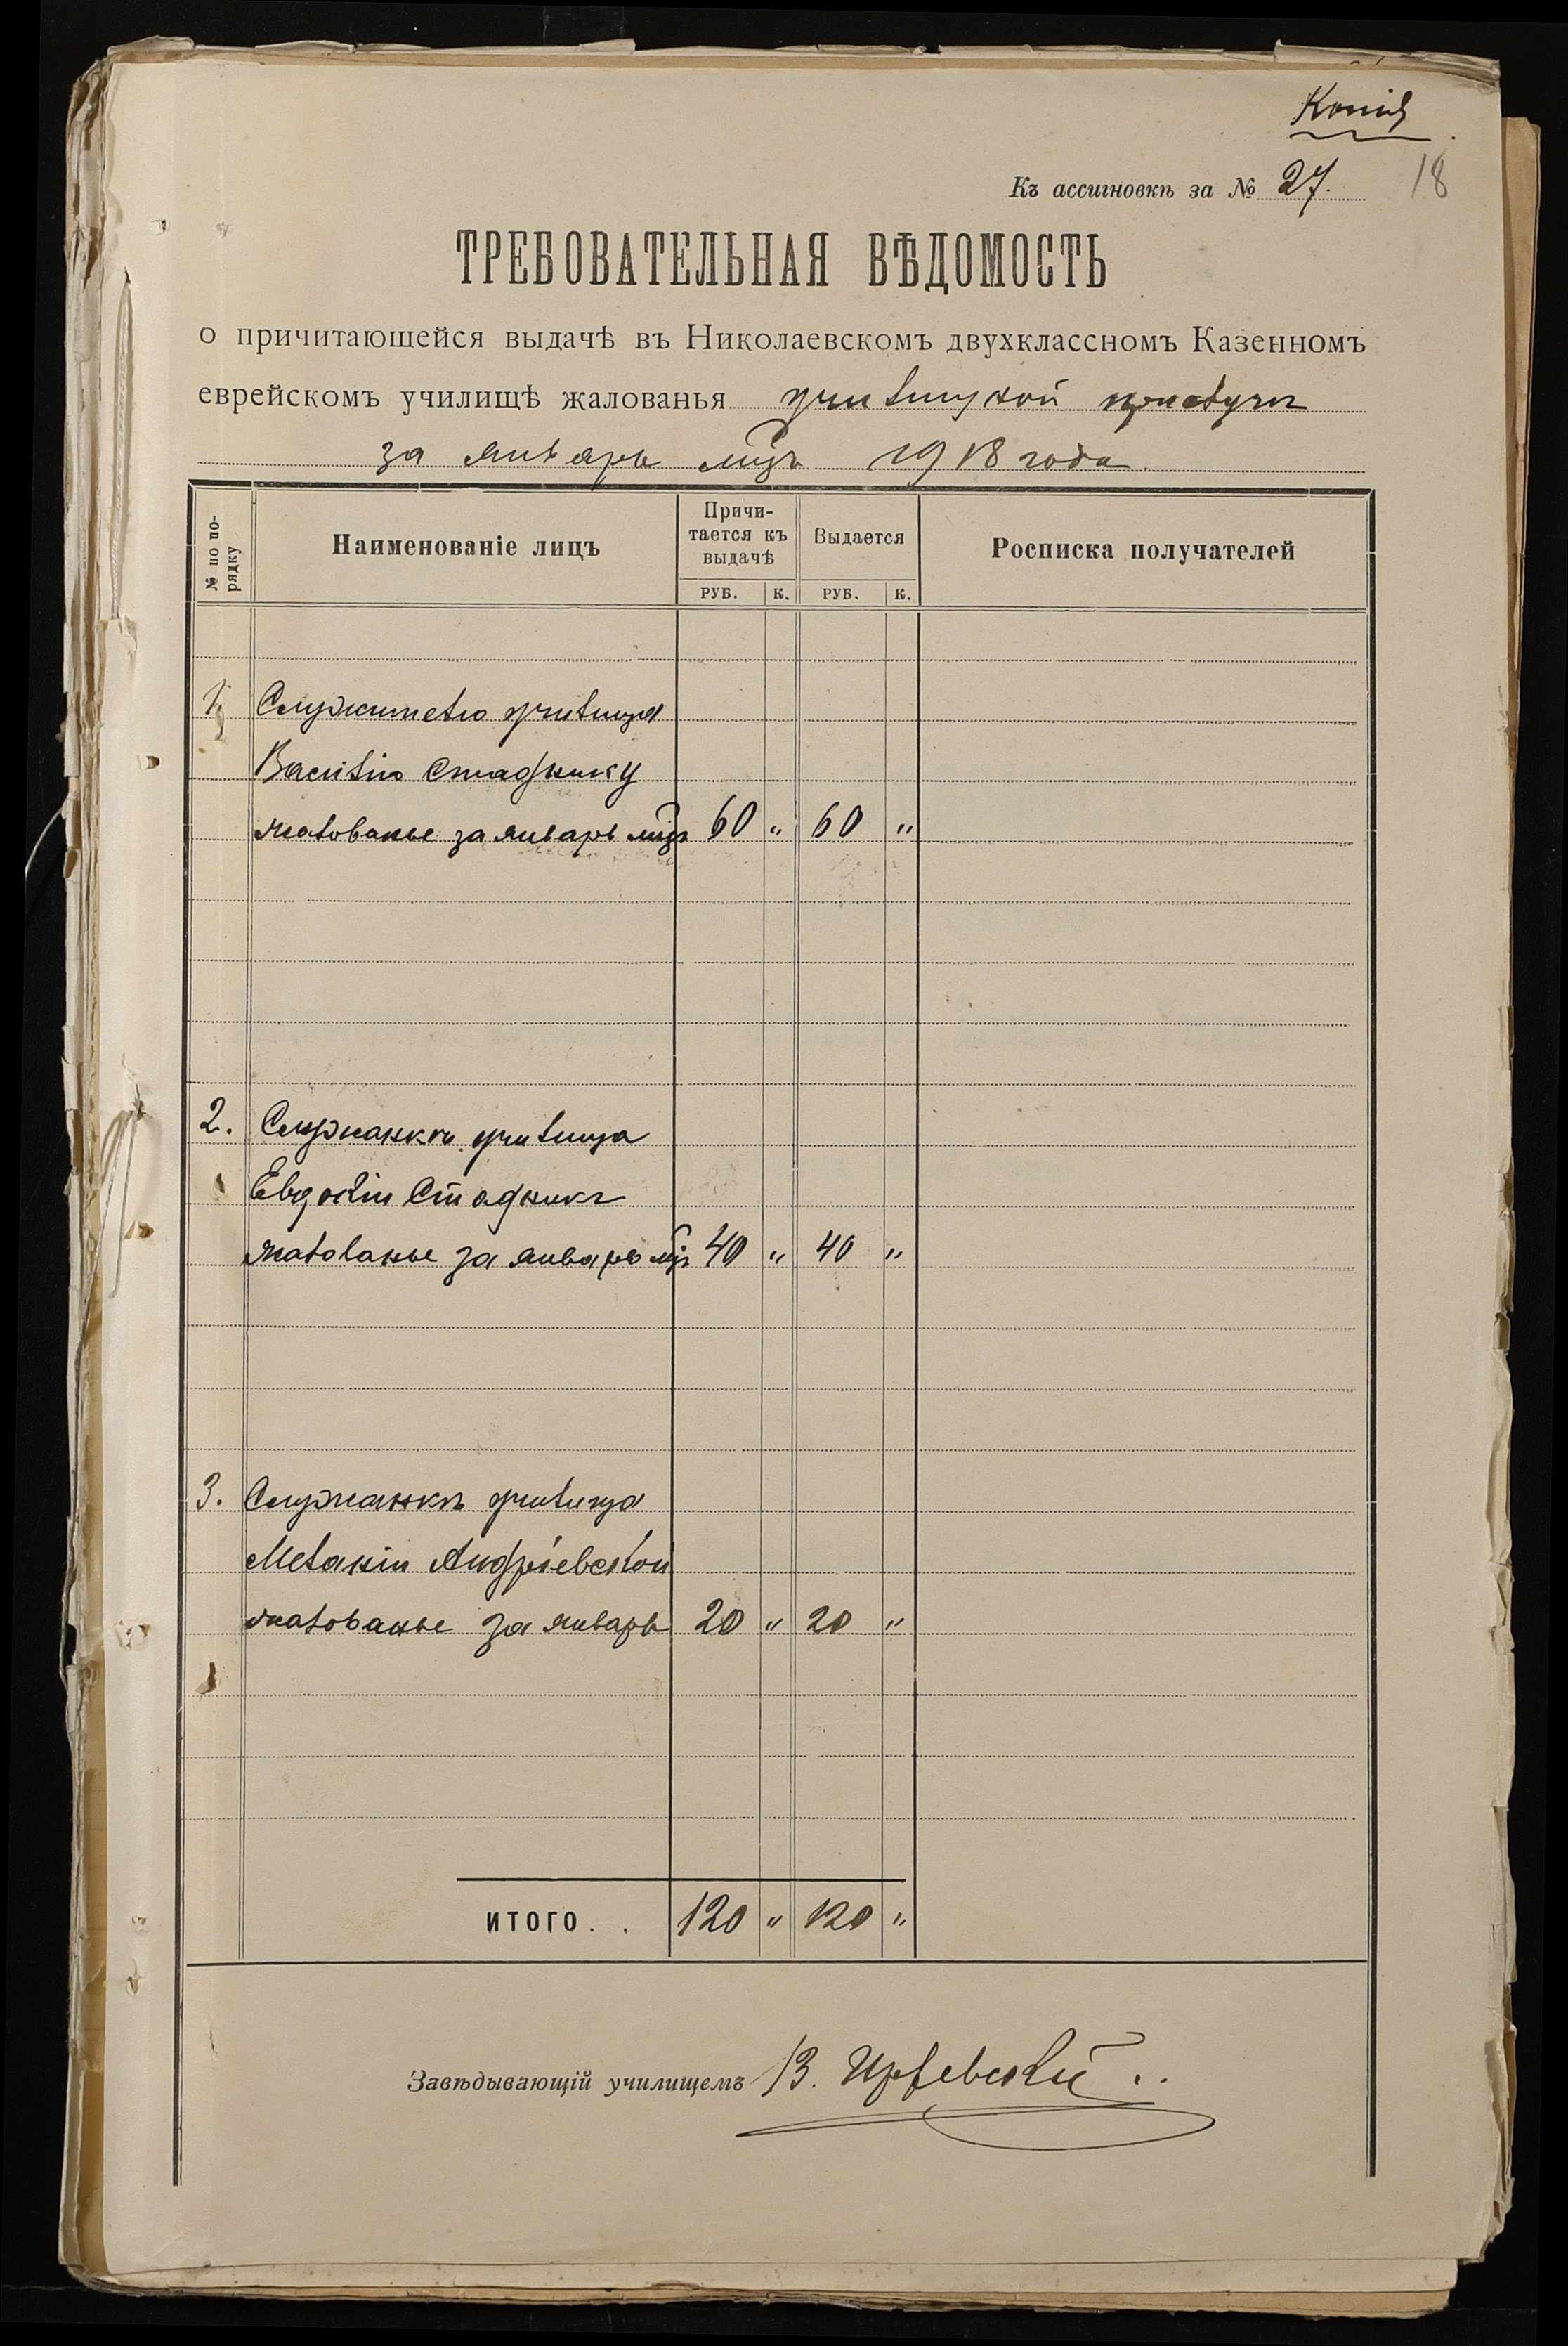 Копія
Къ ассигновкѣ за № 27. 18
ТРЕБОВАТЕЛЬНАЯ ВѢДОМОСТЬ
о причитающейся выдачѣ въ Николаевскомъ двухклассномъ Казенномъ
еврейскомъ училищѣ жалованья училищной прислугѣ
за январь мѣц 1918 года.
№ по по-
рядку
Наименованіе лицъ
Причи-
тается къ
выдачѣ
Выдается
Росписка получателей
РУБ. К. РУБ. К.
1. Служителю училища
Василію Стаднику
жалованье за январь мѣц 60 " 60 "
2. Служанкѣ училища
Евдокіи Стадникъ
жалованье за январь мѣц 40 " 40 "
3. Служанкѣ училища
Меланіи Андріевской
жалованье за январь 20 " 20 "
ИТОГО. . 120 " 120 "
Завѣдывающій училищемъ В.